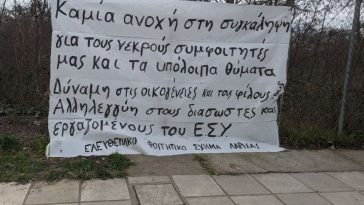 Καμία ανοχή στη συγκάληψη
για τους νεκρούς συμφοιτητές
μας και τα υπόλοιπα θύματα
Δύναμη στις οικογένειές και τους φίλους
Αλληλεγγύη στους διασώστες και
εργαζομένους του ΕΣΥ
ΕΛΕΥΘΕΡΙΑΚΟ ΦΟΙΤΗΤΙΚΟ ΣΧΗΜΑ ΛΑΡΙΣΑΣ